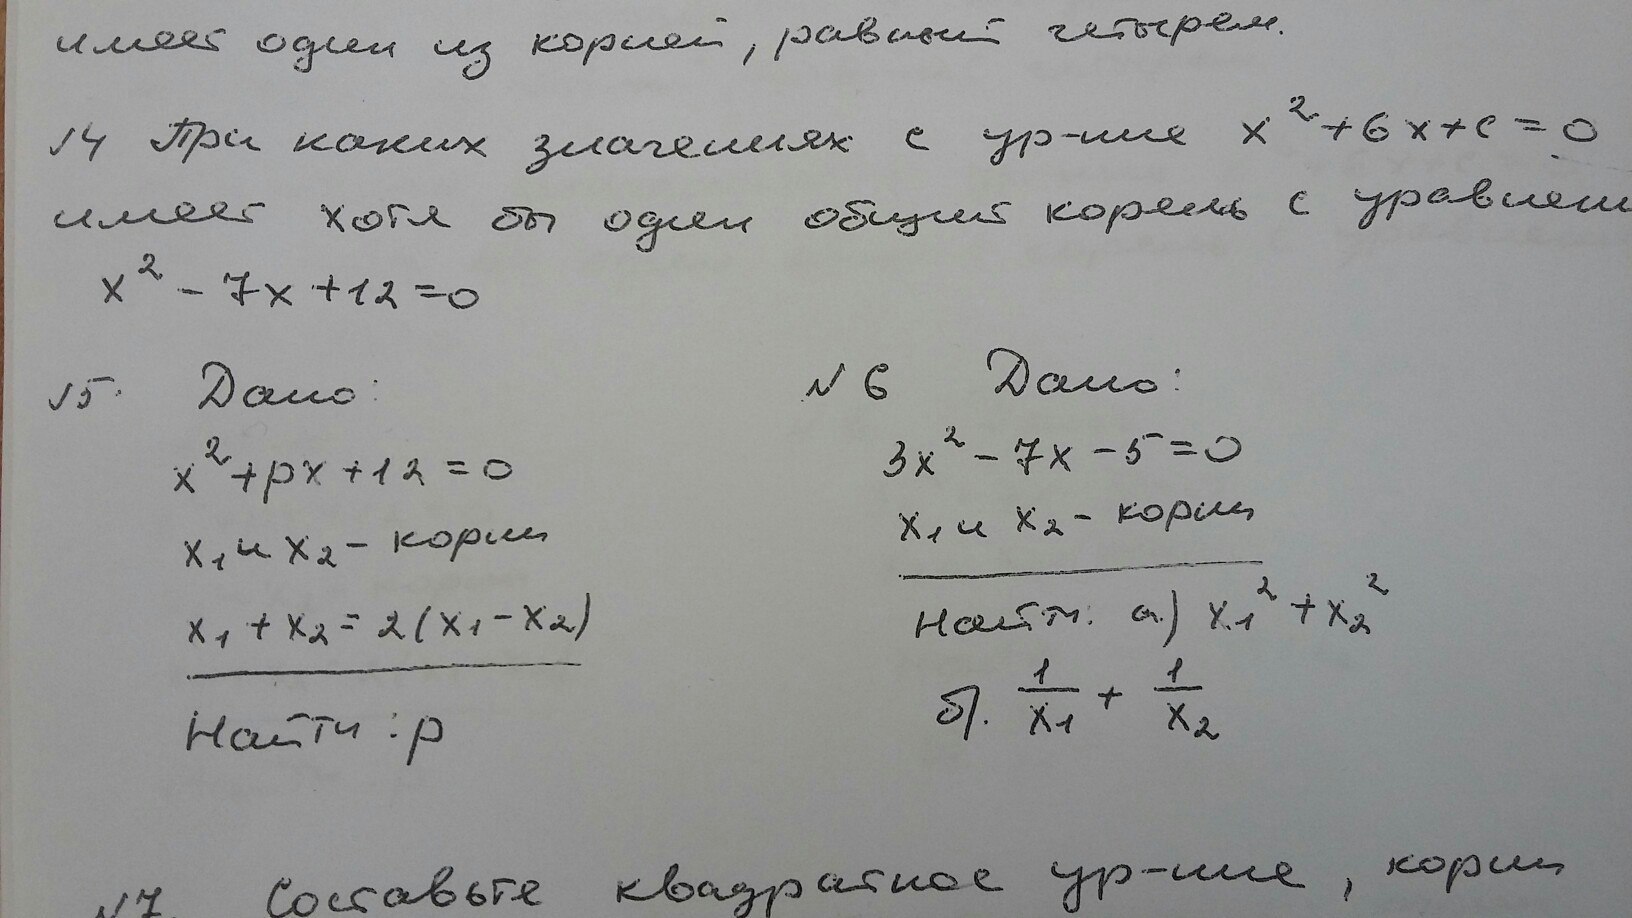 имеет один из корней, равный четырем.
№4 При каких значениях с ур-ние x²+6x+c=0
имеет хотя бы один общий корень с уравнени
x² - 7x +12 =0
№5. Дано:
x²+px+12 =0
x₁ и x₂ - корни
x₁ + x₂ = 2(x₁ - x₂)
Найти : p
№ 6 Дано:
3x² - 7x - 5 = 0
x₁ и x₂ - корни
Найти: а) x₁² + x₂²
б). 1/x₁ + 1/x₂
№7. Составьте квадратное ур-ние, корни